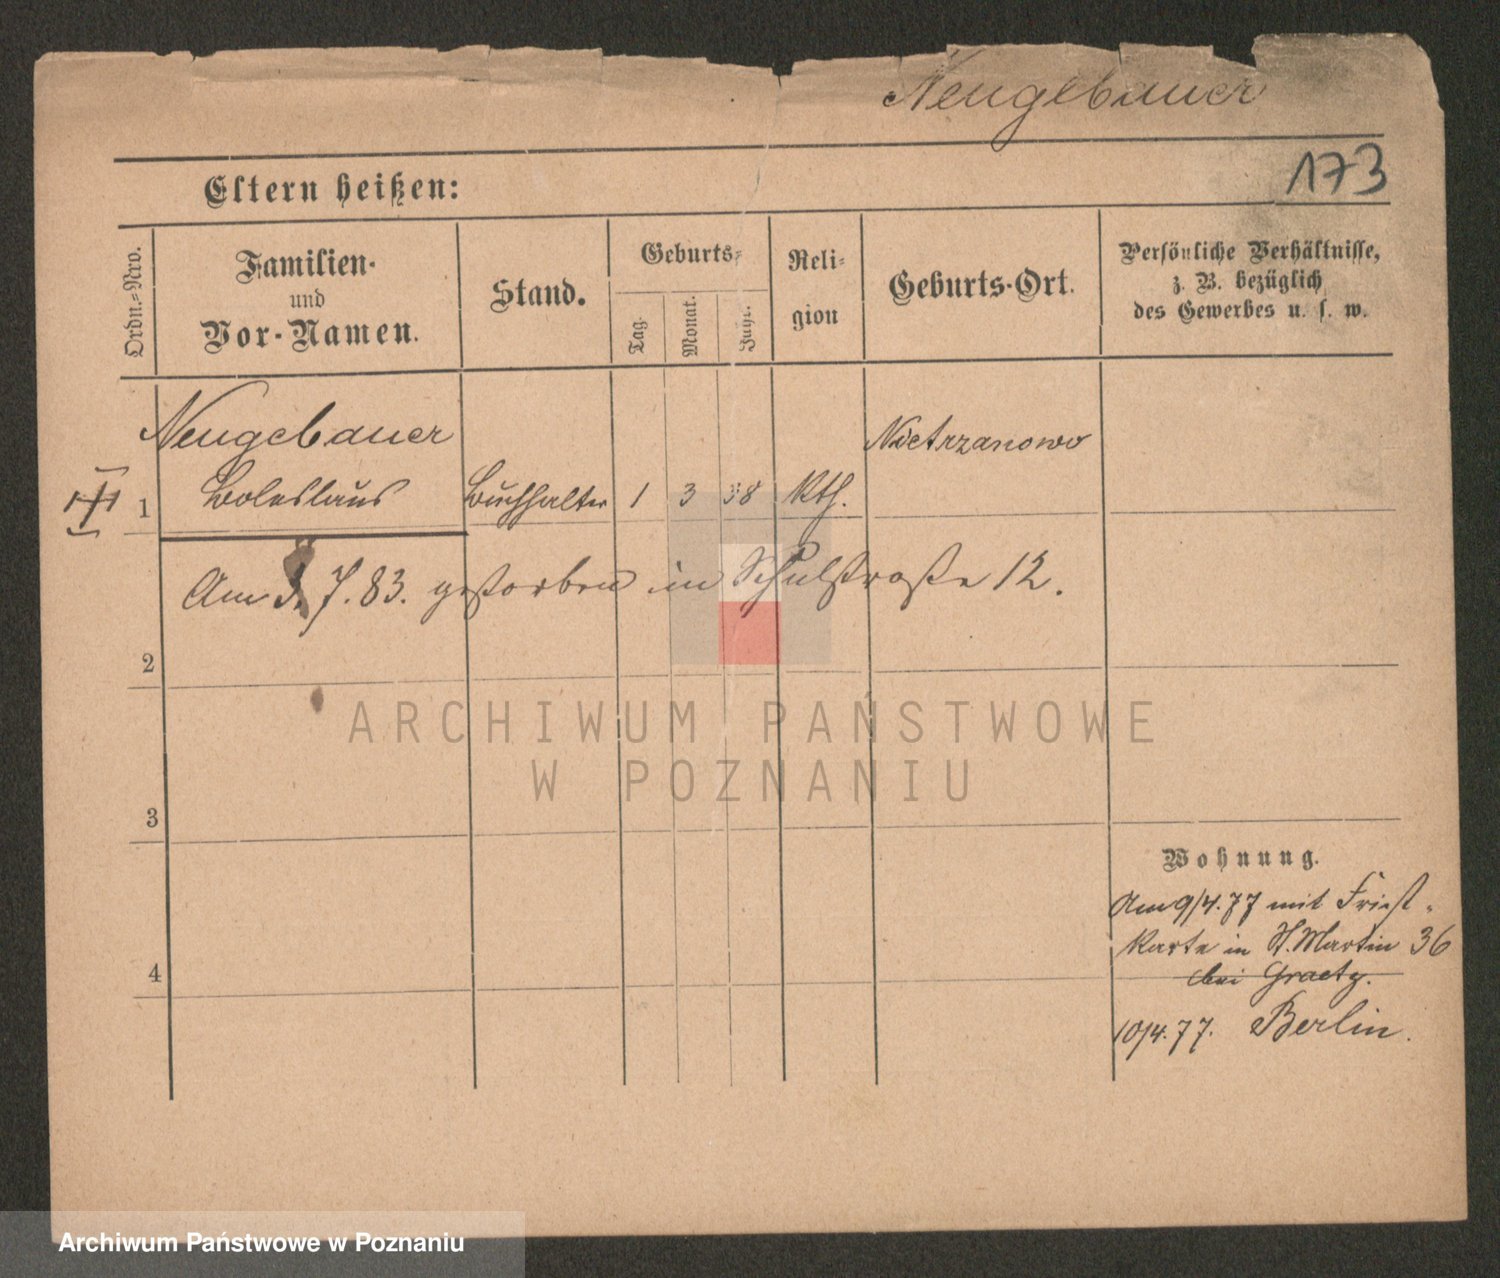 Neugebauer
173
Eltern heißen:
Ordn.=Nro.
Familien-
und
Vor-Namen.
Stand.
Geburts=
Tag.
Monat.
Jahr.
Reli=
gion
Geburts-Ort.
Persönliche Verhältnisse,
z. B. bezüglich
des Gewerbes u. s. w.
Neugebauer
Nietrzanowo
1 Boleslaus Buchhalter 1 3 38 Kth.
Am 7. 83. gestorben in Schulstraße 12.
2
3
4
Wohnung.
Am 9/4. 77 mit
karte in St. Martin 36
bei Graetz.
10/4. 77. Berlin.
ARCHIWUM PAŃSTWOWE
W POZNANIU
Archiwum Państwowe w Poznaniu